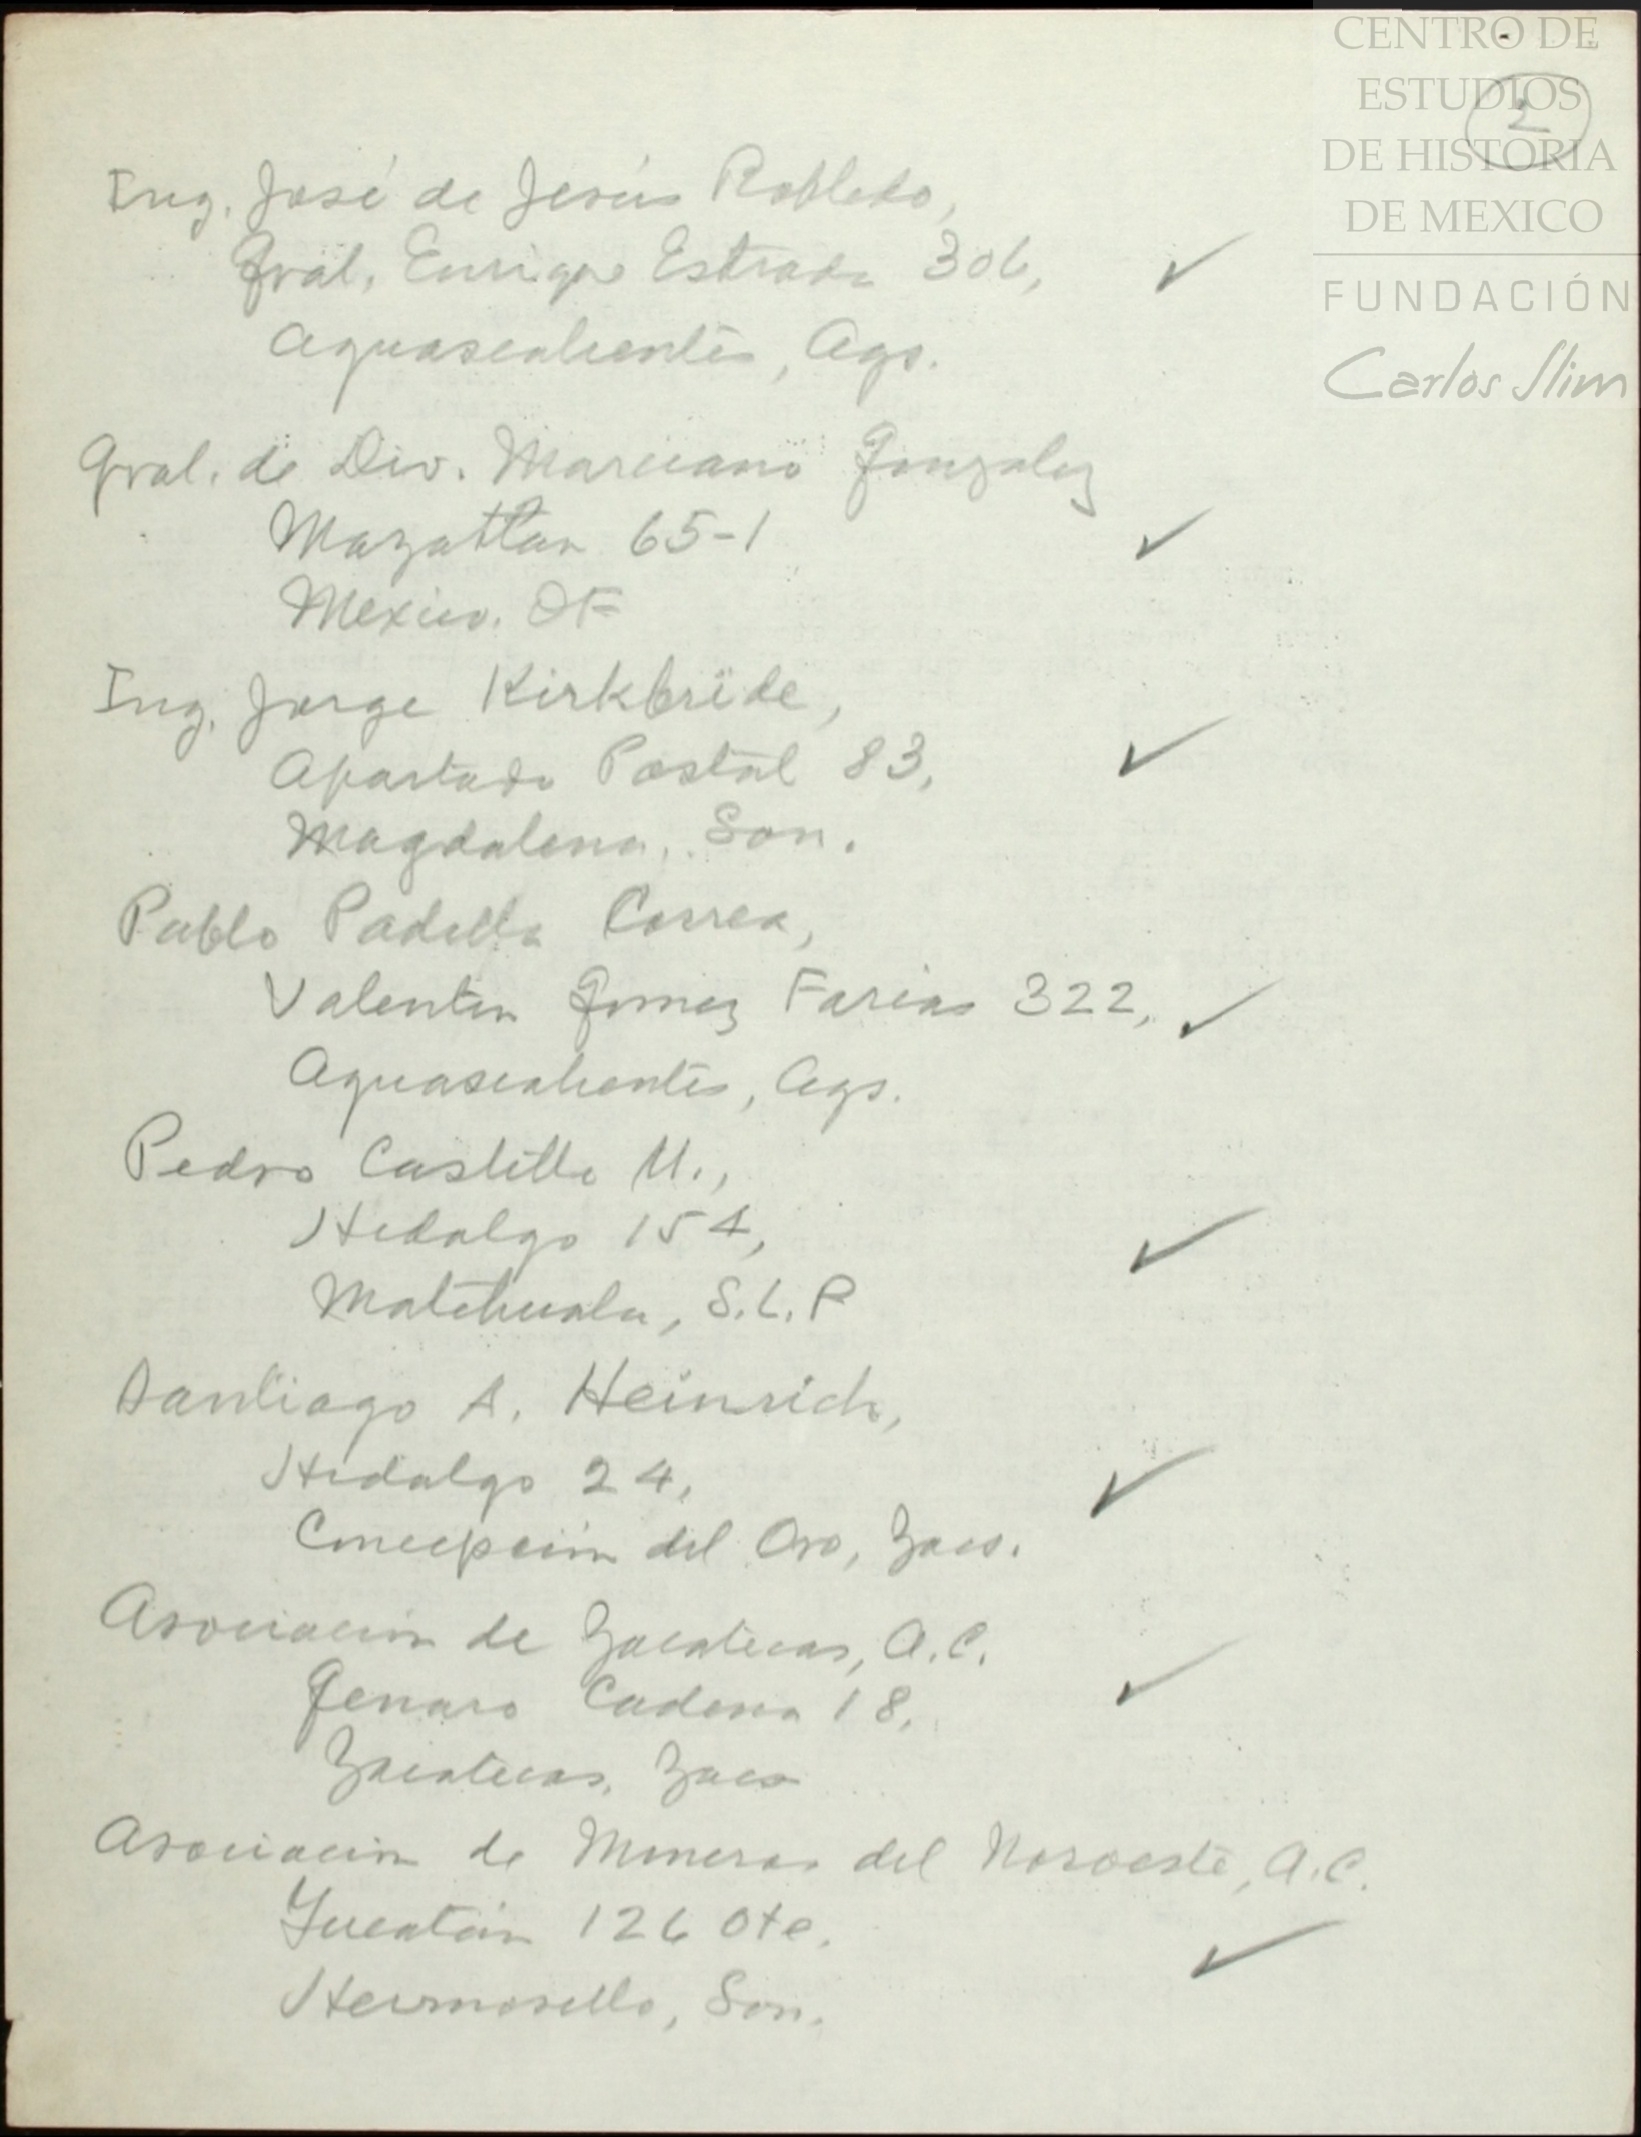 CENTRO DE
ESTUDIOS
DE HISTORIA
DE MEXICO
FUNDACIÓN
Carlos Slim
2
Ing. José de Jesús Robledo,
Gral. Enrique Estrada 306,
Aguascalientes, Ags.
Gral. de Div. Marciano Gonzalez
Mazatlan 65-1
Mexico. DF
Ing. Jorge Kirkbride,
Apartado Postal 83,
Magdalena, Son.
Pablo Padilla Correa,
Valentin Gomez Farias 322,
Aguascalientes, Ags.
Pedro Castillo U.,
Hidalgo 154,
Matehuala, S.L.P
Santiago A. Heinrich,
Hidalgo 24,
Concepción del Oro, Zacs.
Asociación de Zacatecas, A.C.
Genaro Codina 18,
Zacatecas, Zacs
Asociación de Mineros del Noroeste, A.C.
Yucatán 126 Ote.
Hermosillo, Son.